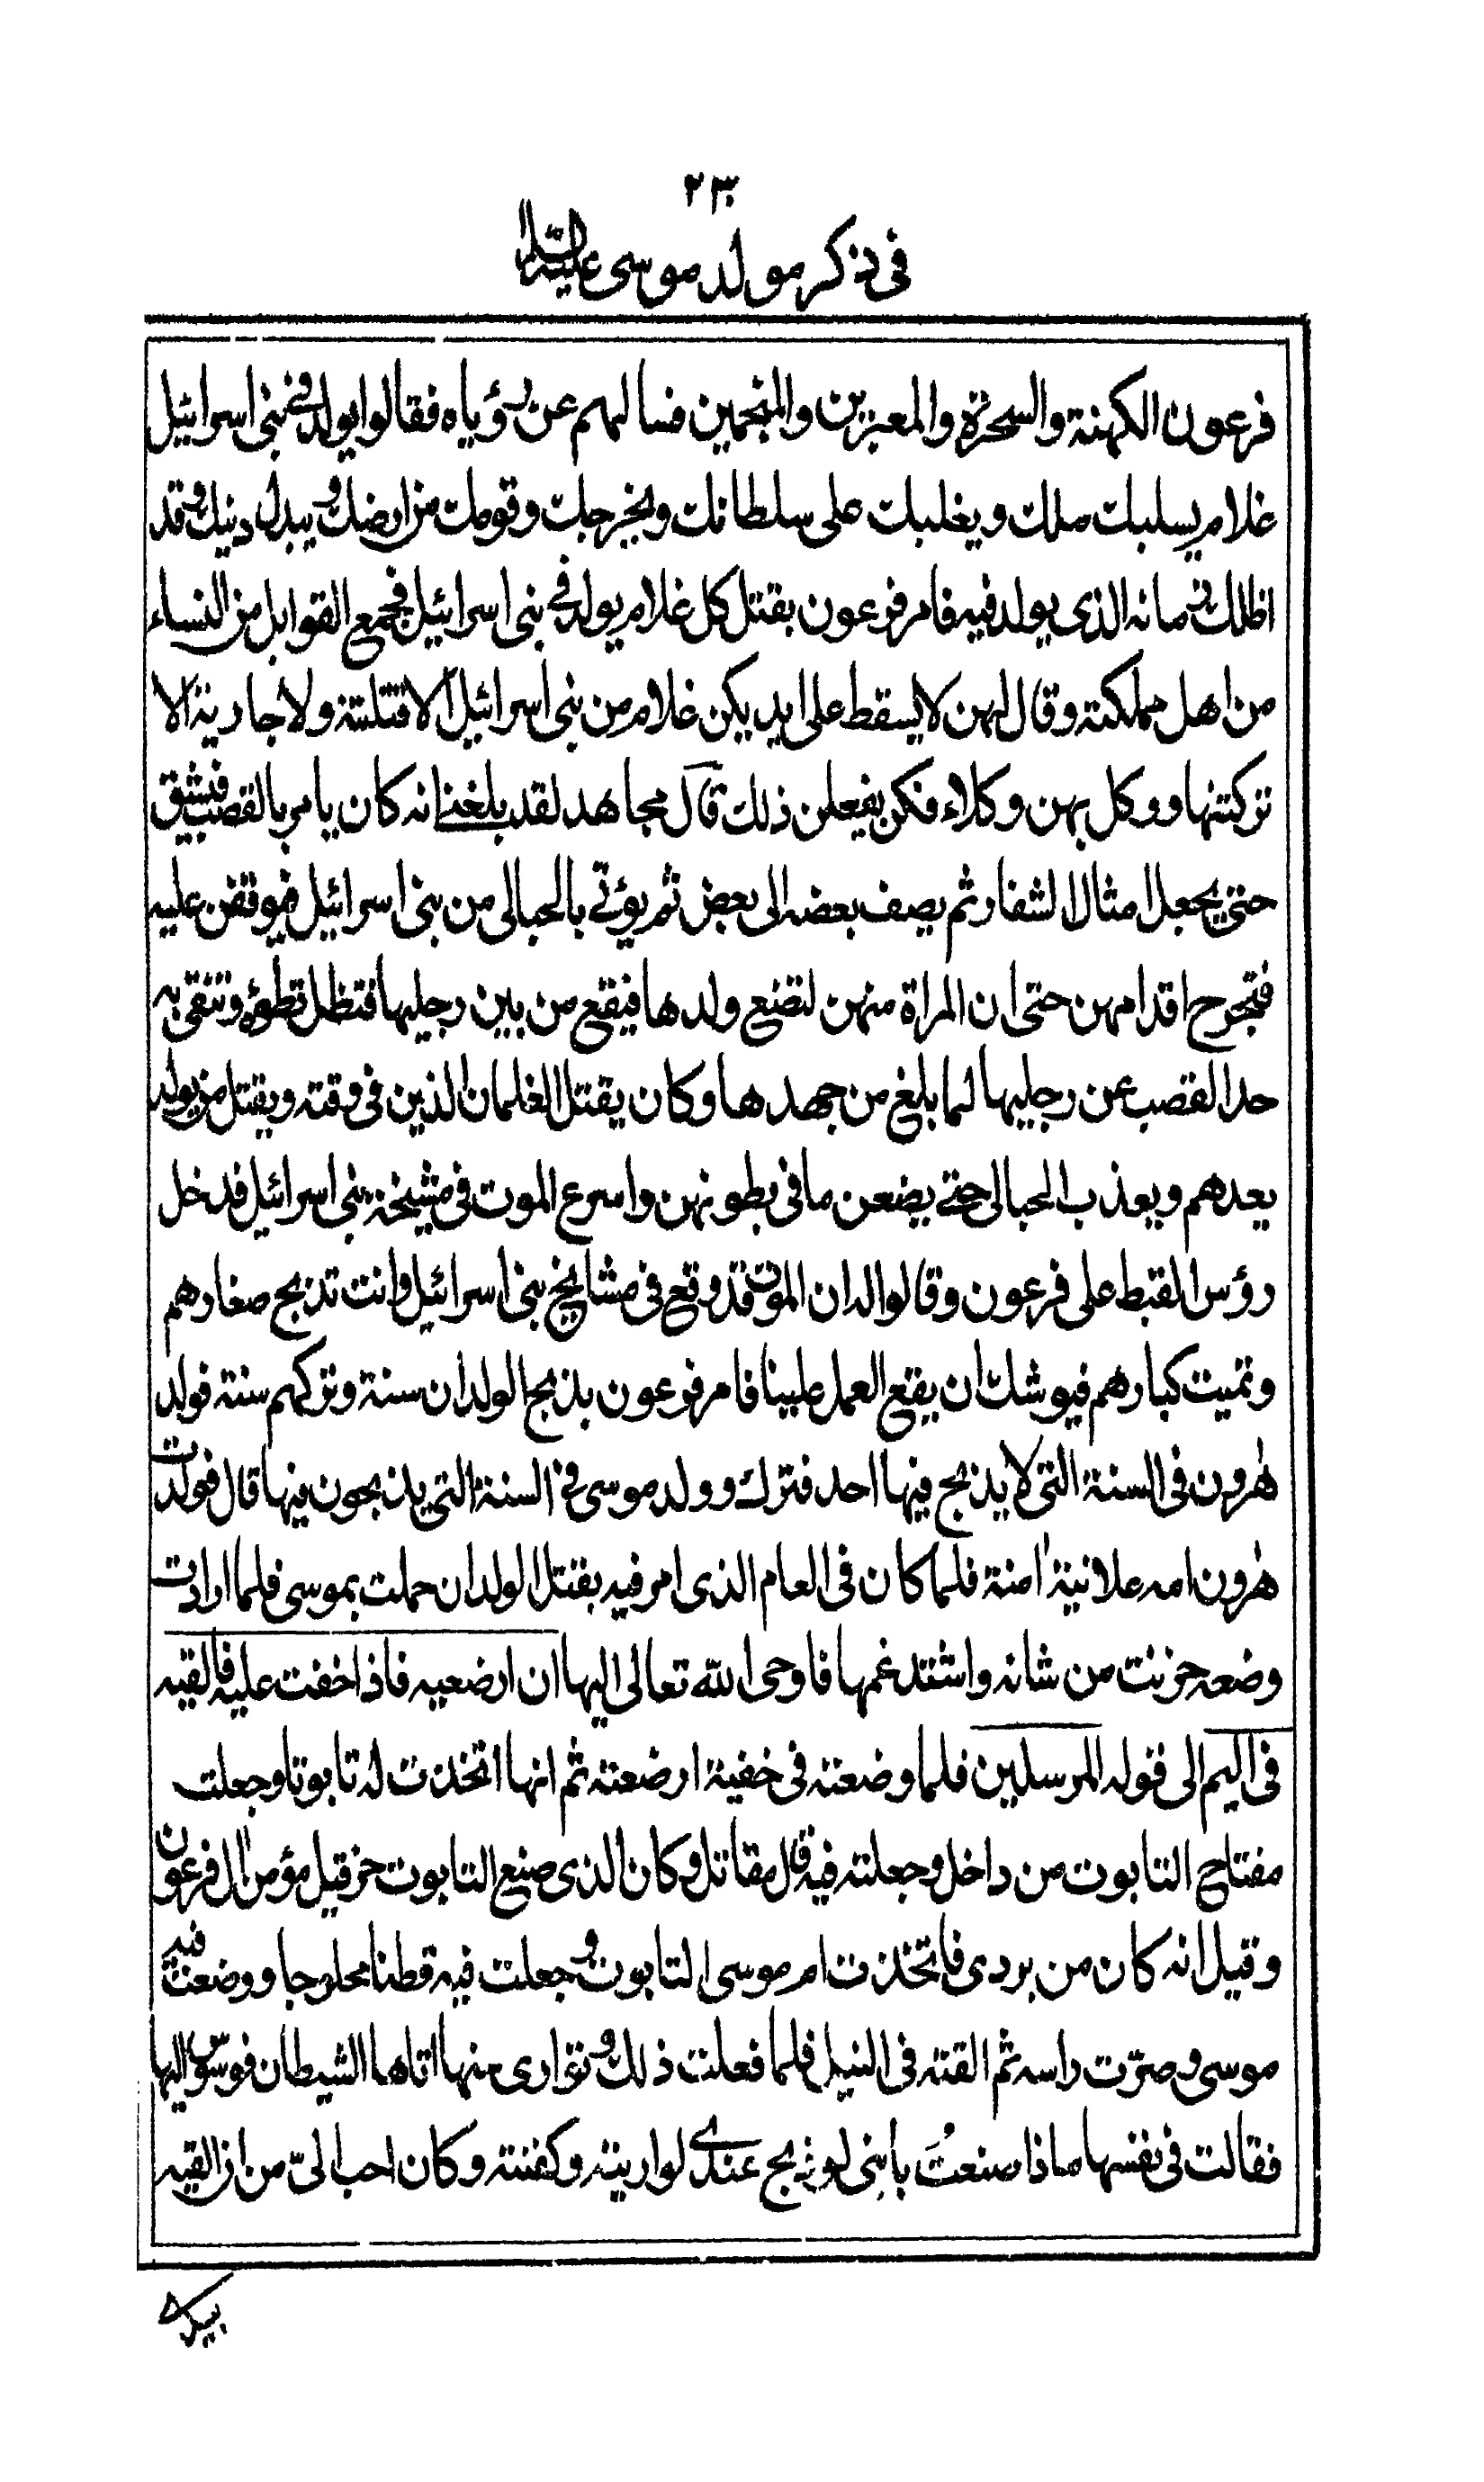 ٢٣
في ذكر مولد موسى عليه السلام
فرعون الكهنة والسحرة والمعبرين والمنجمين فسالهم عن رؤياه فقالوا يولد في بني اسرائيل
غلام يسلبك ملكك ويغلبك على سلطانك ويخرجك وقومك من ارضك ويبدل دينك وقد
اظلك زمانه الذي يولد فيه فامر فرعون بقتل كل غلام يولد في بني اسرائيل فجمع القوابل من النساء
من اهل مملكته وقال لهن لا يسقط على ايديكن غلام من بني اسرائيل الا قتلتنه ولا جارية الا
تركتنها ووكل بهن وكلاء فكن يفعلن ذلك قال مجاهد لقد بلغني انه كان يامر بالقصب فيشق
حتى يجعل امثال الشفار ثم يصف بعضه الى بعض ثم يؤتى بالحبالى من بني اسرائيل فيوقفن عليه
فتجرح اقدامهن حتى ان المراة منهن لتضع ولدها فيقع من بين رجليها فتظل تطؤه وتتقى به
حد القصب عن رجليها لما بلغ من جهدها وكان يقتل الغلمان الذين في وقته ويقتل من يولد
بعدهم ويعذب الحبالى حتى يضعن ما في بطونهن واسرع الموت في مشيخة بني اسرائيل فدخل
رؤس القبط على فرعون وقالوا له ان الموت قد وقع في مشايخ بني اسرائيل وانت تذبح صغارهم
وتميت كبارهم فيوشك ان يقع العمل علينا فامر فرعون بذبح الولدان سنة وتركهم سنة فولد
هرون في السنة التي لا يذبح فيها احد فترك وولد موسى في السنة التي يذبحون فيها قال فولدت
هرون امه علانية امنة فلما كان في العام الذي امر فيه بقتل الولدان حملت بموسى فلما ارادت
وضعه حزنت من شانه واشتد غمها فاوحى الله تعالى اليها ان ارضعيه فاذا خفت عليه فالقيه
في اليم الى قوله المرسلين فلما وضعته في خفية ارضعته ثم انها اتخذت له تابوتا وجعلت
مفتاح التابوت من داخل وجعلته فيه قال مقاتل وكان الذي صنع التابوت حزقيل مؤمن ال فرعون
وقيل انه كان من بردي فاتخذت ام موسى التابوت وجعلت فيه قطنا محلوجا ووضعت فيه
موسى وصرّت راسه ثم القته في النيل فلما فعلت ذلك وتوارى منها اتاها الشيطان فوسوس اليها
فقالت في نفسها ماذا صنعتُ بابني لو ذبح عندي لواريته وكفنته وكان احب اليّ من ان القيه
بيدي